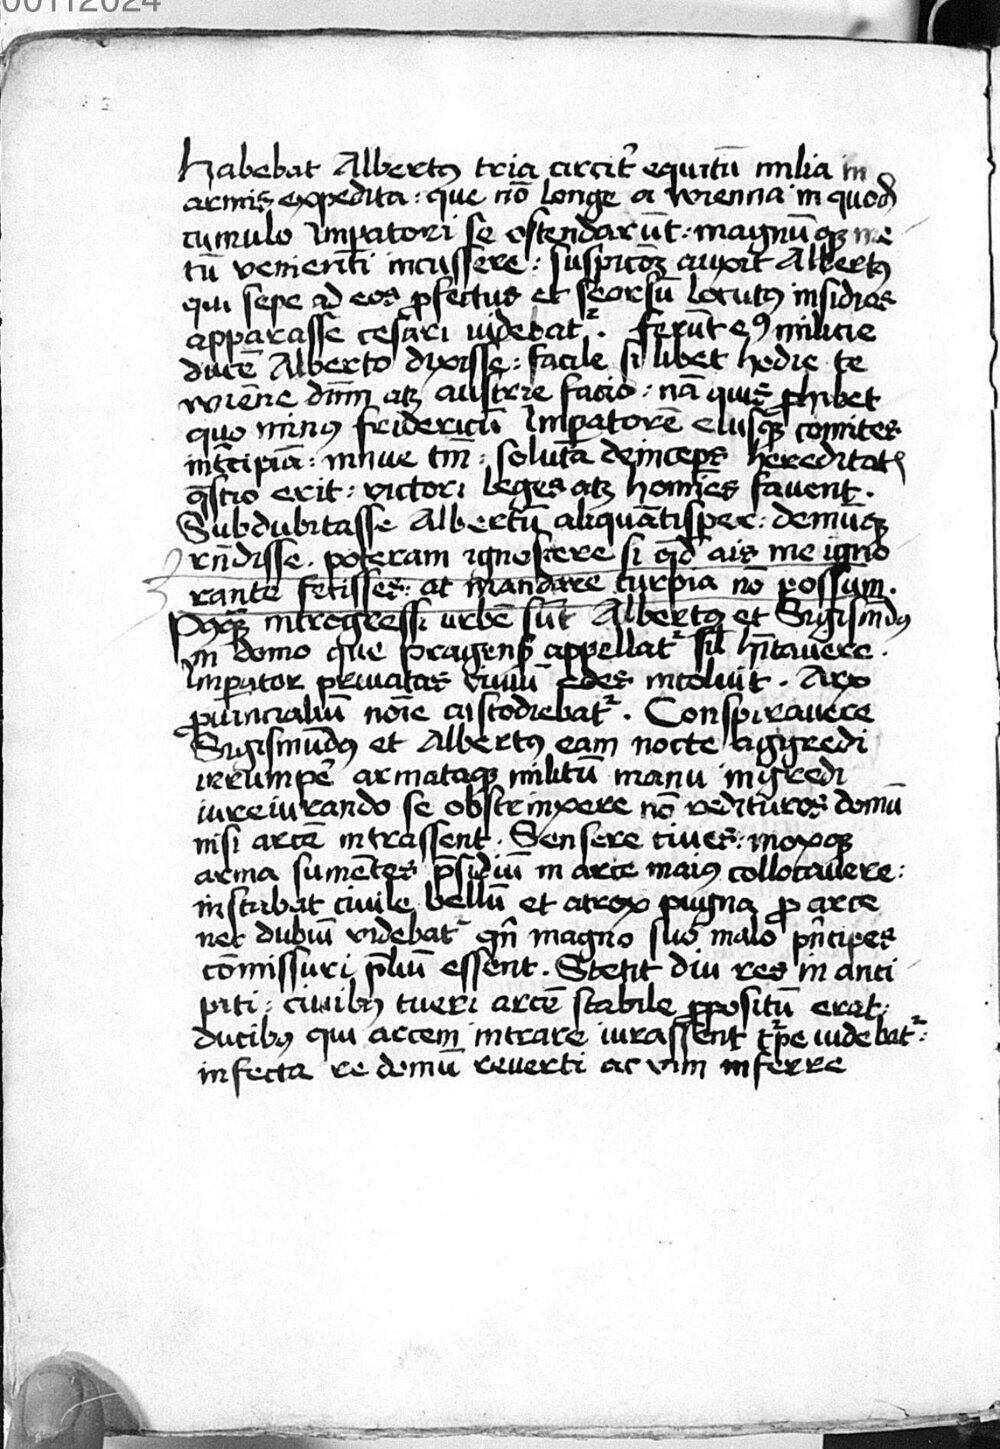 00112024
habebat Albertꝰ tria circit̉ equitū milia in
armis expedita : que nō longe a wienna in quodā
tumulo Impatori se ostendarūt : magnūqꝫ me
tū venienti incussere : suspicōꝫ auxit Albertꝰ
qui sepe ad eos ꝓfectus et seorsū locutꝰ insidias
apparasse cesari videbat᷑ . ferūt eꝰ milicie
ducē Alberto dixisse : facile si libet hodie te
wiēne dn̄m atꝫ austrie facio : nā quis ꝓhibet
quo minꝰ fridericū Imꝑatorē eiusqꝫ comites
int̄cipiā : innue tm̄ : soluta deinceps hereditatꝭ
q̄stio erit : victori leges atꝫ homīes favent .
Subdubitasse Albertū aliquātisper : demūqꝫ
rn̄disse . poteram ignoscere si qd ais me igno
rante fecisses : at mandare turpia nō possum .
Pꝰqꝫ introgressi urbē sūt Albertꝰ et Sigismūdꝰ
in domo que pragens̄ appellat᷑ sił hītavere .
Imꝑator privatas civiū edes incoluit . Arx
ꝓvincialiū noīe custodiebat᷑ . Conspiravere
Sigismūdꝰ et Albertꝰ eam nocte aggredi
irrumpe᷑ armataqꝫ militū manu ingredi
iureiurando se obstrinxere nō redituros domū
nisi arcē intrassent . Sensere cives : moxqꝫ
arma sumētes p̄sidiū in arce maiꝰ collocavere :
instabat civile bellū et atrox pugna ꝓ arce
nec dubiū videbat᷑ qn̄ magno suo malo pn̄cipes
cōmissuri p̄liū essent . Stetit diu res in anci
piti : civibꝰ tueri arcē stabile ꝓpositū erat :
ducibꝰ qui arcem intrare iurassent t᷑pe videbat᷑ :
infecta re domū reverti ac vim inferre